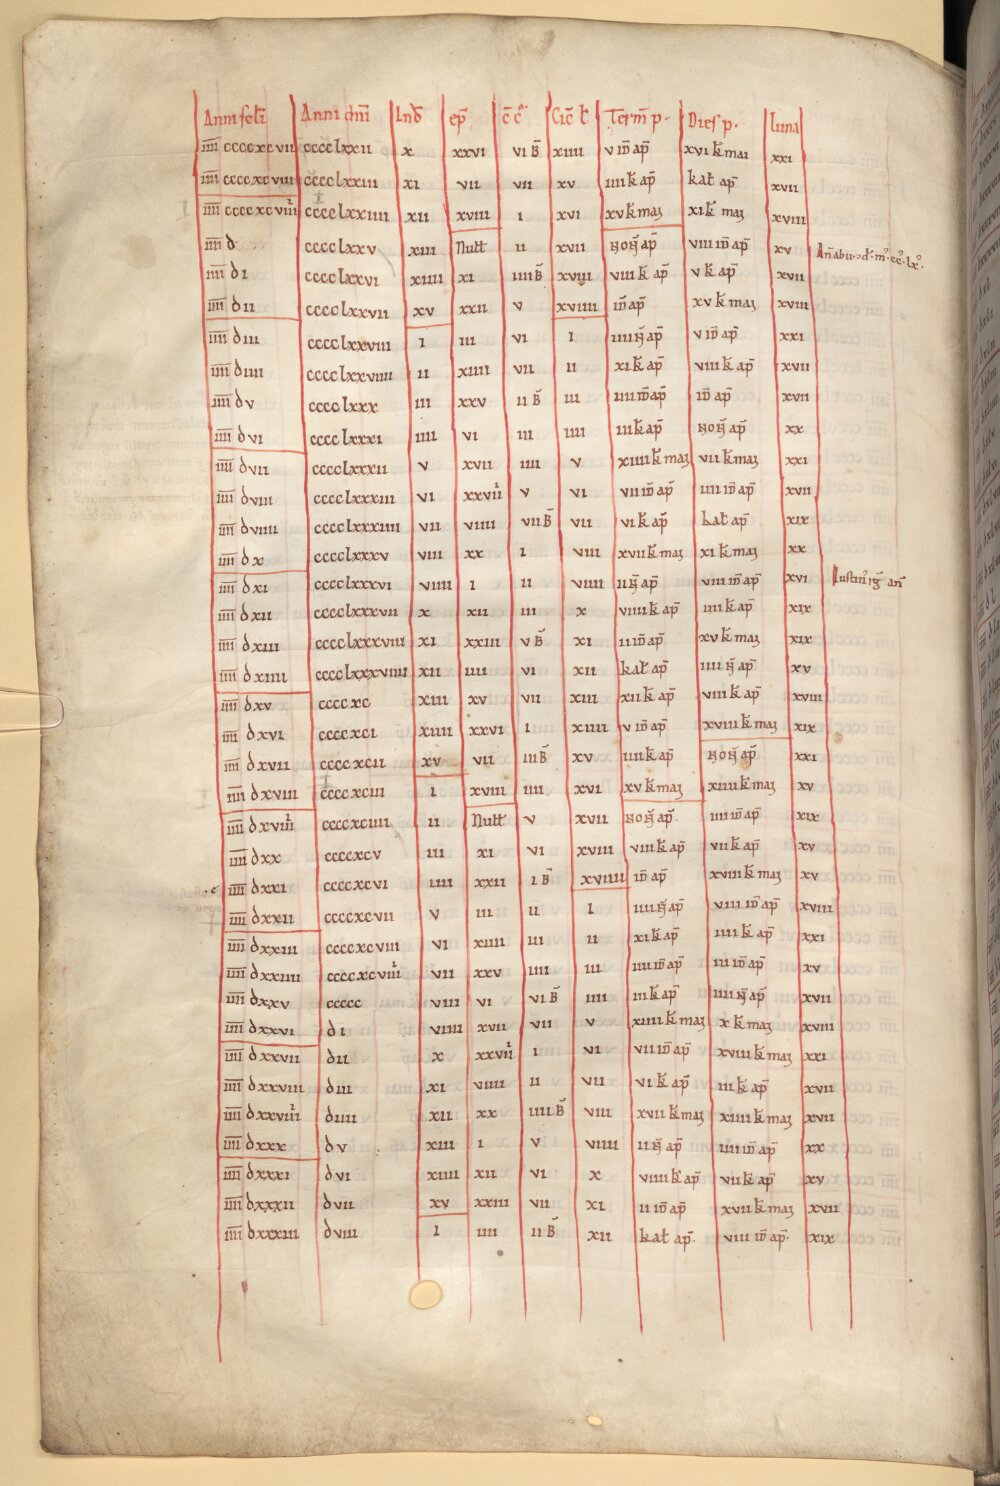 Anni seculi Anni dni Ind ep c c Cic l Term p. Dies p. luna
IIII ccccxcvii cccclxxii x xxvi vi B xiiii v id ap xvi k mai xxi
IIII ccccxcviii cccclxxiii xi vii vii xv iiii k ap kal ap xvii
IIII ccccxcviiii cccclxxiiii xii xviii i xvi xv k mai xi k mai xviii
IIII d cccclxxv xiii Null ii xvii Non ap viii id ap xv
IIII di cccclxxvi xiiii xi iiii B xviii viii k ap v k ap xvii
IIII dii cccclxxvii xv xxii v xviiii id ap xv k mai xviii
IIII diii cccclxxviii i iii vi i iiii n ap v id ap xxi
IIII diiii cccclxxviiii ii xiiii vii ii xi k ap viii k ap xvii
IIII dv cccclxxx iii xxv ii B iii iiii id ap id ap xvii
IIII dvi cccclxxxi iiii vi iii iiii iii k ap Non ap xx
IIII dvii cccclxxxii v xvii iiii v xiiii k mai vii k mai xxi
IIII dviii cccclxxxiii vi xxviii v vi vii id ap iiii id ap xvii
IIII dviiii cccclxxxiiii vii viiii vii B vii vi k ap kal ap xix
IIII dx cccclxxxv viii xx i viii xvii k mai xi k mai xx
IIII dxi cccclxxxvi viiii i ii viiii ii n ap viii id ap xvi
IIII dxii cccclxxxvii x xii iii x viiii k ap iiii k ap xix
IIII dxiii cccclxxxviii xi xxiii v B xi ii id ap xv k mai xix
IIII dxiiii cccclxxxviiii xii iiii vi xii kal ap iiii n ap xv
IIII dxv ccccxc xiii xv vii xiii xii k ap viii k ap xviii
IIII dxvi ccccxci xiiii xxvi i xiiii v id ap xviii k mai xix
IIII dxvii ccccxcii xv vii iii B xv iiii k ap Non ap xxi
IIII dxviii ccccxciii i xviii iiii xvi xv k mai xiiii k mai xv
IIII dxviiii ccccxciiii ii Null v xvii Non ap iiii id ap xix
IIII dxx ccccxcv iii xi vi xviii viii k ap vii k ap xv
IIII dxxi ccccxcvi iiii xxii i B xviiii id ap xviii k mai xv
IIII dxxii ccccxcvii v iii ii i iiii n ap viii id ap xviii
IIII dxxiii ccccxcviii vi xiiii iii ii xi k ap iiii k ap xxi
IIII dxxiiii ccccxcviiii vii xxv iiii iii iiii id ap iii id ap xv
IIII dxxv ccccc viii vi vi B iiii iii k ap iiii n ap xvii
IIII dxxvi di viiii xvii vii v xiiii k mai x k mai xviii
IIII dxxvii dii x xxviii i vi vii id ap xviii k mai xxi
IIII dxxviii diii xi viiii ii vii vi k ap iii k ap xvii
IIII dxxviiii diiii xii xx iiii B viii xvii k mai xiiii k mai xvii
IIII dxxx dv xiii i v viiii ii n ap iiii id ap xx
IIII dxxxi dvi xiiii xii vi x viiii k ap vii k ap xv
IIII dxxxii dvii xv xxiii vii xi ii id ap xvii k mai xvii
IIII dxxxiii dviii i iiii ii B xii kal ap. viii id ap. xix